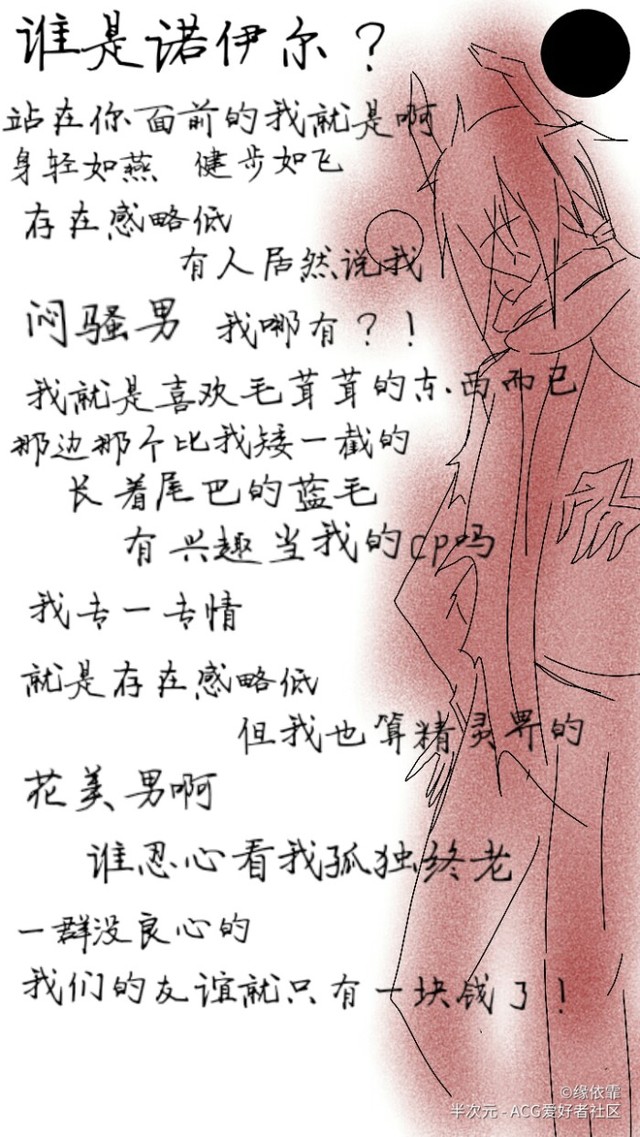 谁是诺伊尔？
站在你面前的我就是啊
身轻如燕 健步如飞
存在感略低
有人居然说我
闷骚男 我哪有？！
我就是喜欢毛茸茸的东西而已
那边那个比我矮一截的
长着尾巴的蓝毛
有兴趣当我的cp吗
我专一专情
就是存在感略低
但我也算精灵界的
花美男啊
谁忍心看我孤独终老
一群没良心的
我们的友谊就只有一块钱了！
©缘依霏
半次元 - ACG爱好者社区